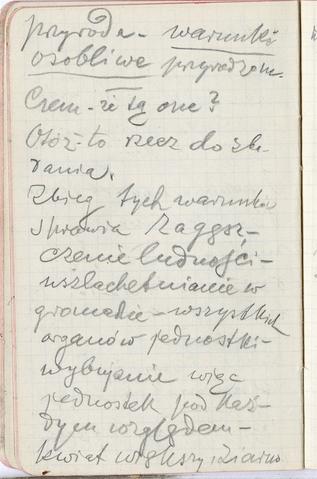 przyroda - warunki
osobliwe przyrodzon.
Czem-że są one?
Otóż-to rzecz do zba-
dania.
Zbieg tych warunków
sprawia zaggsz-
czenie ludności -
uszlachetnianie w
gromadzie - wszystkich
organów jednostki -
wybujanie więc
jednostek pod każ-
dym względem -
kwiat większy i ziarno